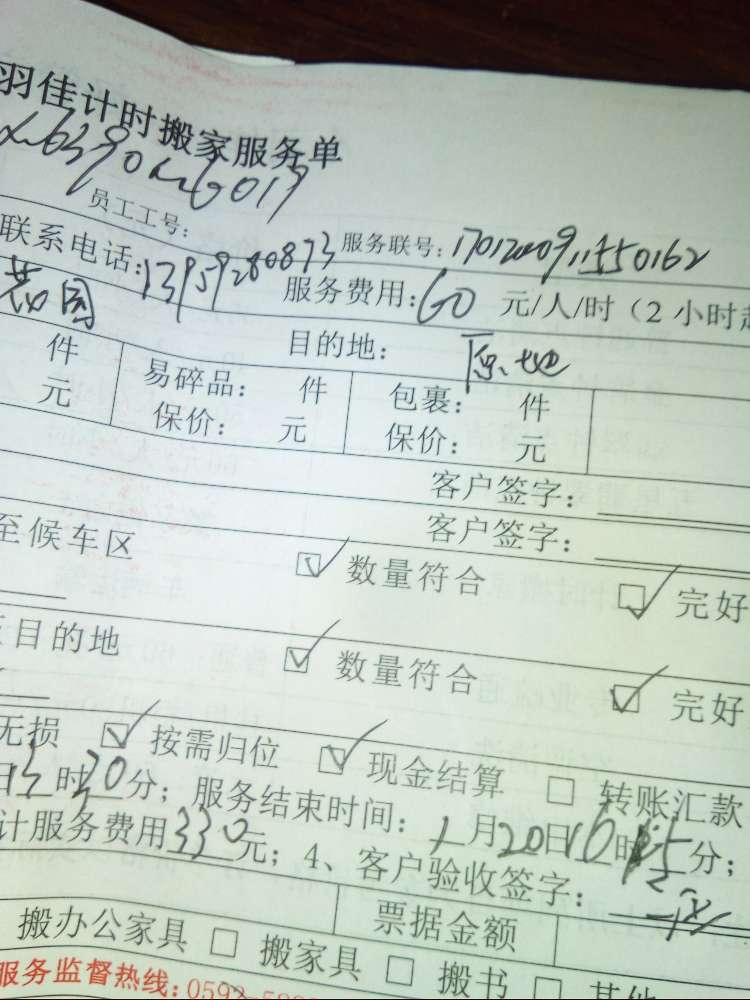 羽佳计时搬家服务单
员工工号:
联系电话:13959280873 服务联号:
服务费用:60 元/人/时(2小时起
目的地: 原地
件 易碎品: 件 包裹: 件
元 保价: 元 保价: 元
客户签字:
客户签字:
至候车区 ☑ 数量符合 ☑ 完好
目的地 ☑ 数量符合 ☑ 完好
无损 ☑ 按需归位 ☑ 现金结算 □ 转账汇款
日13时30分;服务结束时间:1月20日16时15分;
计服务费用330元;4、客户验收签字:
票据金额
搬办公家具 □ 搬家具 □ 搬书 □ 其他
服务监督热线:0592-5